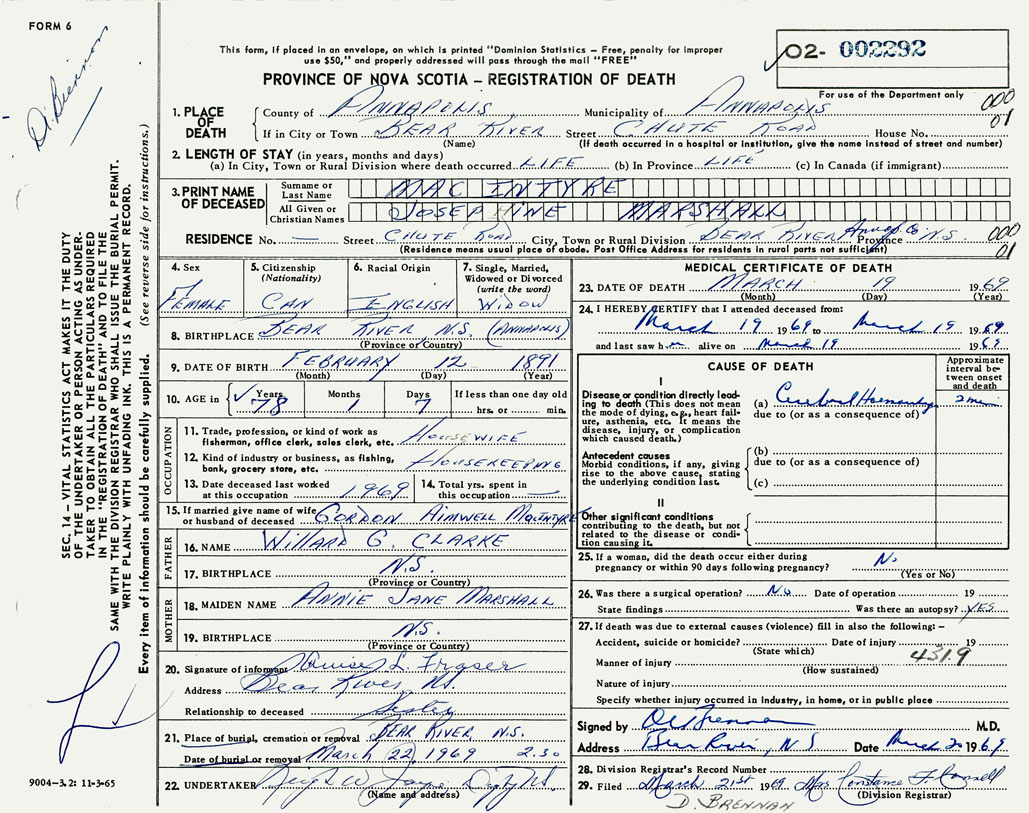 FORM 6
D. Brennan
SEC. 14 – VITAL STATISTICS ACT MAKES IT THE DUTY
OF THE UNDERTAKER OR PERSON ACTING AS UNDER-
TAKER TO OBTAIN ALL THE PARTICULARS REQUIRED
IN THE "REGISTRATION OF DEATH" AND TO FILE THE
SAME WITH THE DIVISION REGISTRAR WHO SHALL ISSUE THE BURIAL PERMIT.
WRITE PLAINLY WITH UNFADING INK. THIS IS A PERMANENT RECORD.
Every item of information should be carefully supplied. (See reverse side for instructions.)
9004–3.2: 11-3-65
This form, if placed in an envelope, on which is printed "Dominion Statistics – Free, penalty for improper
use $50," and properly addressed will pass through the mail "FREE"
PROVINCE OF NOVA SCOTIA – REGISTRATION OF DEATH
02- 002292
For use of the Department only
000
01
1. PLACE OF DEATH County of ANNAPOLIS Municipality of ANNAPOLIS
If in City or Town BEAR RIVER Street CHUTE ROAD House No.
(Name) (If death occurred in a hospital or institution, give the name instead of street and number)
2. LENGTH OF STAY (in years, months and days)
(a) In City, Town or Rural Division where death occurred LIFE (b) In Province LIFE (c) In Canada (if immigrant)
3. PRINT NAME OF DECEASED Surname or Last Name MAC INTYRE
All Given or Christian Names JOSEPHINE MARSHALL
RESIDENCE No. — Street CHUTE ROAD City, Town or Rural Division BEAR RIVER Annap. Co Province N.S. 000
(Residence means usual place of abode. Post Office Address for residents in rural parts not sufficient) 01
4. Sex FEMALE
5. Citizenship (Nationality) CAN
6. Racial Origin ENGLISH
7. Single, Married, Widowed or Divorced (write the word) WIDOW
8. BIRTHPLACE BEAR RIVER, N.S. (ANNAPOLIS)
(Province or Country)
9. DATE OF BIRTH FEBRUARY 12 1891
(Month) (Day) (Year)
10. AGE in Years 78 Months 1 Days 7 If less than one day old
hrs. or min.
OCCUPATION
11. Trade, profession, or kind of work as
fisherman, office clerk, sales clerk, etc. HOUSEWIFE
12. Kind of industry or business, as fishing,
bank, grocery store, etc. HOUSEKEEPING
13. Date deceased last worked
at this occupation 1969
14. Total yrs. spent in
this occupation —
15. If married give name of wife
or husband of deceased GORDON AIMWELL MCINTYRE
FATHER
16. NAME WILLARD G. CLARKE
17. BIRTHPLACE N.S.
(Province or Country)
MOTHER
18. MAIDEN NAME ANNIE JANE MARSHALL
19. BIRTHPLACE N.S.
(Province or Country)
20. Signature of informant Louise L. Fraser
Address Bear River, N.S.
Relationship to deceased Sister
21. Place of burial, cremation or removal BEAR RIVER N.S.
Date of burial or removal March 22, 1969 2.30
22. UNDERTAKER
(Name and address)
MEDICAL CERTIFICATE OF DEATH
23. DATE OF DEATH MARCH 19 1969
(Month) (Day) (Year)
24. I HEREBY CERTIFY that I attended deceased from:
March 19 1969 to March 19 1969
and last saw h er alive on March 19 1969
CAUSE OF DEATH
Approximate interval be-tween onset and death
I
Disease or condition directly lead-
ing to death (This does not mean
the mode of dying, e.g., heart fail-
ure, asthenia, etc. It means the
disease, injury, or complication
which caused death.)
(a) Cerebral Hemorrhage 2 min
due to (or as a consequence of)
Antecedent causes
Morbid conditions, if any, giving
rise to the above cause, stating
the underlying condition last.
(b)
due to (or as a consequence of)
(c)
II
Other significant conditions
contributing to the death, but not
related to the disease or condi-
tion causing it.
25. If a woman, did the death occur either during
pregnancy or within 90 days following pregnancy? No
(Yes or No)
26. Was there a surgical operation? No Date of operation 19
State findings Was there an autopsy? YES
27. If death was due to external causes (violence) fill in also the following: –
Accident, suicide or homicide? Date of injury 19
(State which) 431.9
Manner of injury
(How sustained)
Nature of injury
Specify whether injury occurred in industry, in home, or in public place
Signed by Brennan M.D.
Address Bear River, N.S Date March 20 1969
28. Division Registrar's Record Number
29. Filed March 21st 1969 Mrs Constance F. Connell
(Division Registrar)
D. BRENNAN